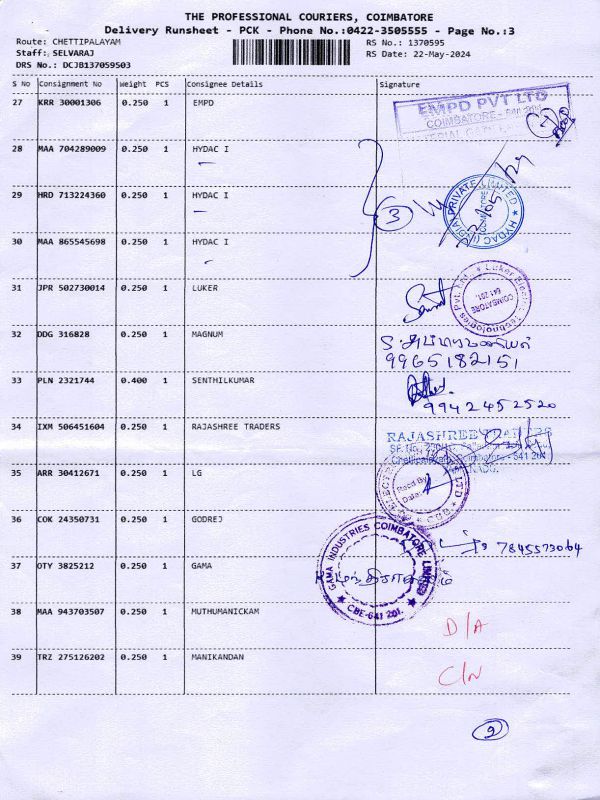 THE PROFESSIONAL COURIERS, COIMBATORE
Delivery Runsheet - PCK - Phone No.:0422-3505555 - Page No.:3
Route: CHETTIPALAYAM RS No.: 1370595
Staff: SELVARAJ RS Date: 22-May-2024
DRS No.: DCJB137059503
S No Consignment No Weight PCS Consignee Details Signature
27 KRR 30001306 0.250 1 EMPD
EMPD PVT LTD
COIMBATORE
28 MAA 704289009 0.250 1 HYDAC I
29 HRD 713224360 0.250 1 HYDAC I
3
HYDAC (INDIA) PRIVATE LIMITED
COIMBATORE
30 MAA 865545698 0.250 1 HYDAC I
31 JPR 502730014 0.250 1 LUKER
Luker Electric Technologies Pvt. Ltd.
COIMBATORE
641 201.
32 DDG 316828 0.250 1 MAGNUM
9965182151
33 PLN 2321744 0.400 1 SENTHILKUMAR
9942452520
34 IXM 506451604 0.250 1 RAJASHREE TRADERS
RAJASHREE TRADERS
35 ARR 30412671 0.250 1 LG
Recd By
Date:
36 COK 24350731 0.250 1 GODREJ
7845573064
37 OTY 3825212 0.250 1 GAMA
GAMA INDUSTRIES COIMBATORE LIMITED
CBE-641 201.
38 MAA 943703507 0.250 1 MUTHUMANICKAM
D/A
39 TRZ 275126202 0.250 1 MANIKANDAN
C/N
9